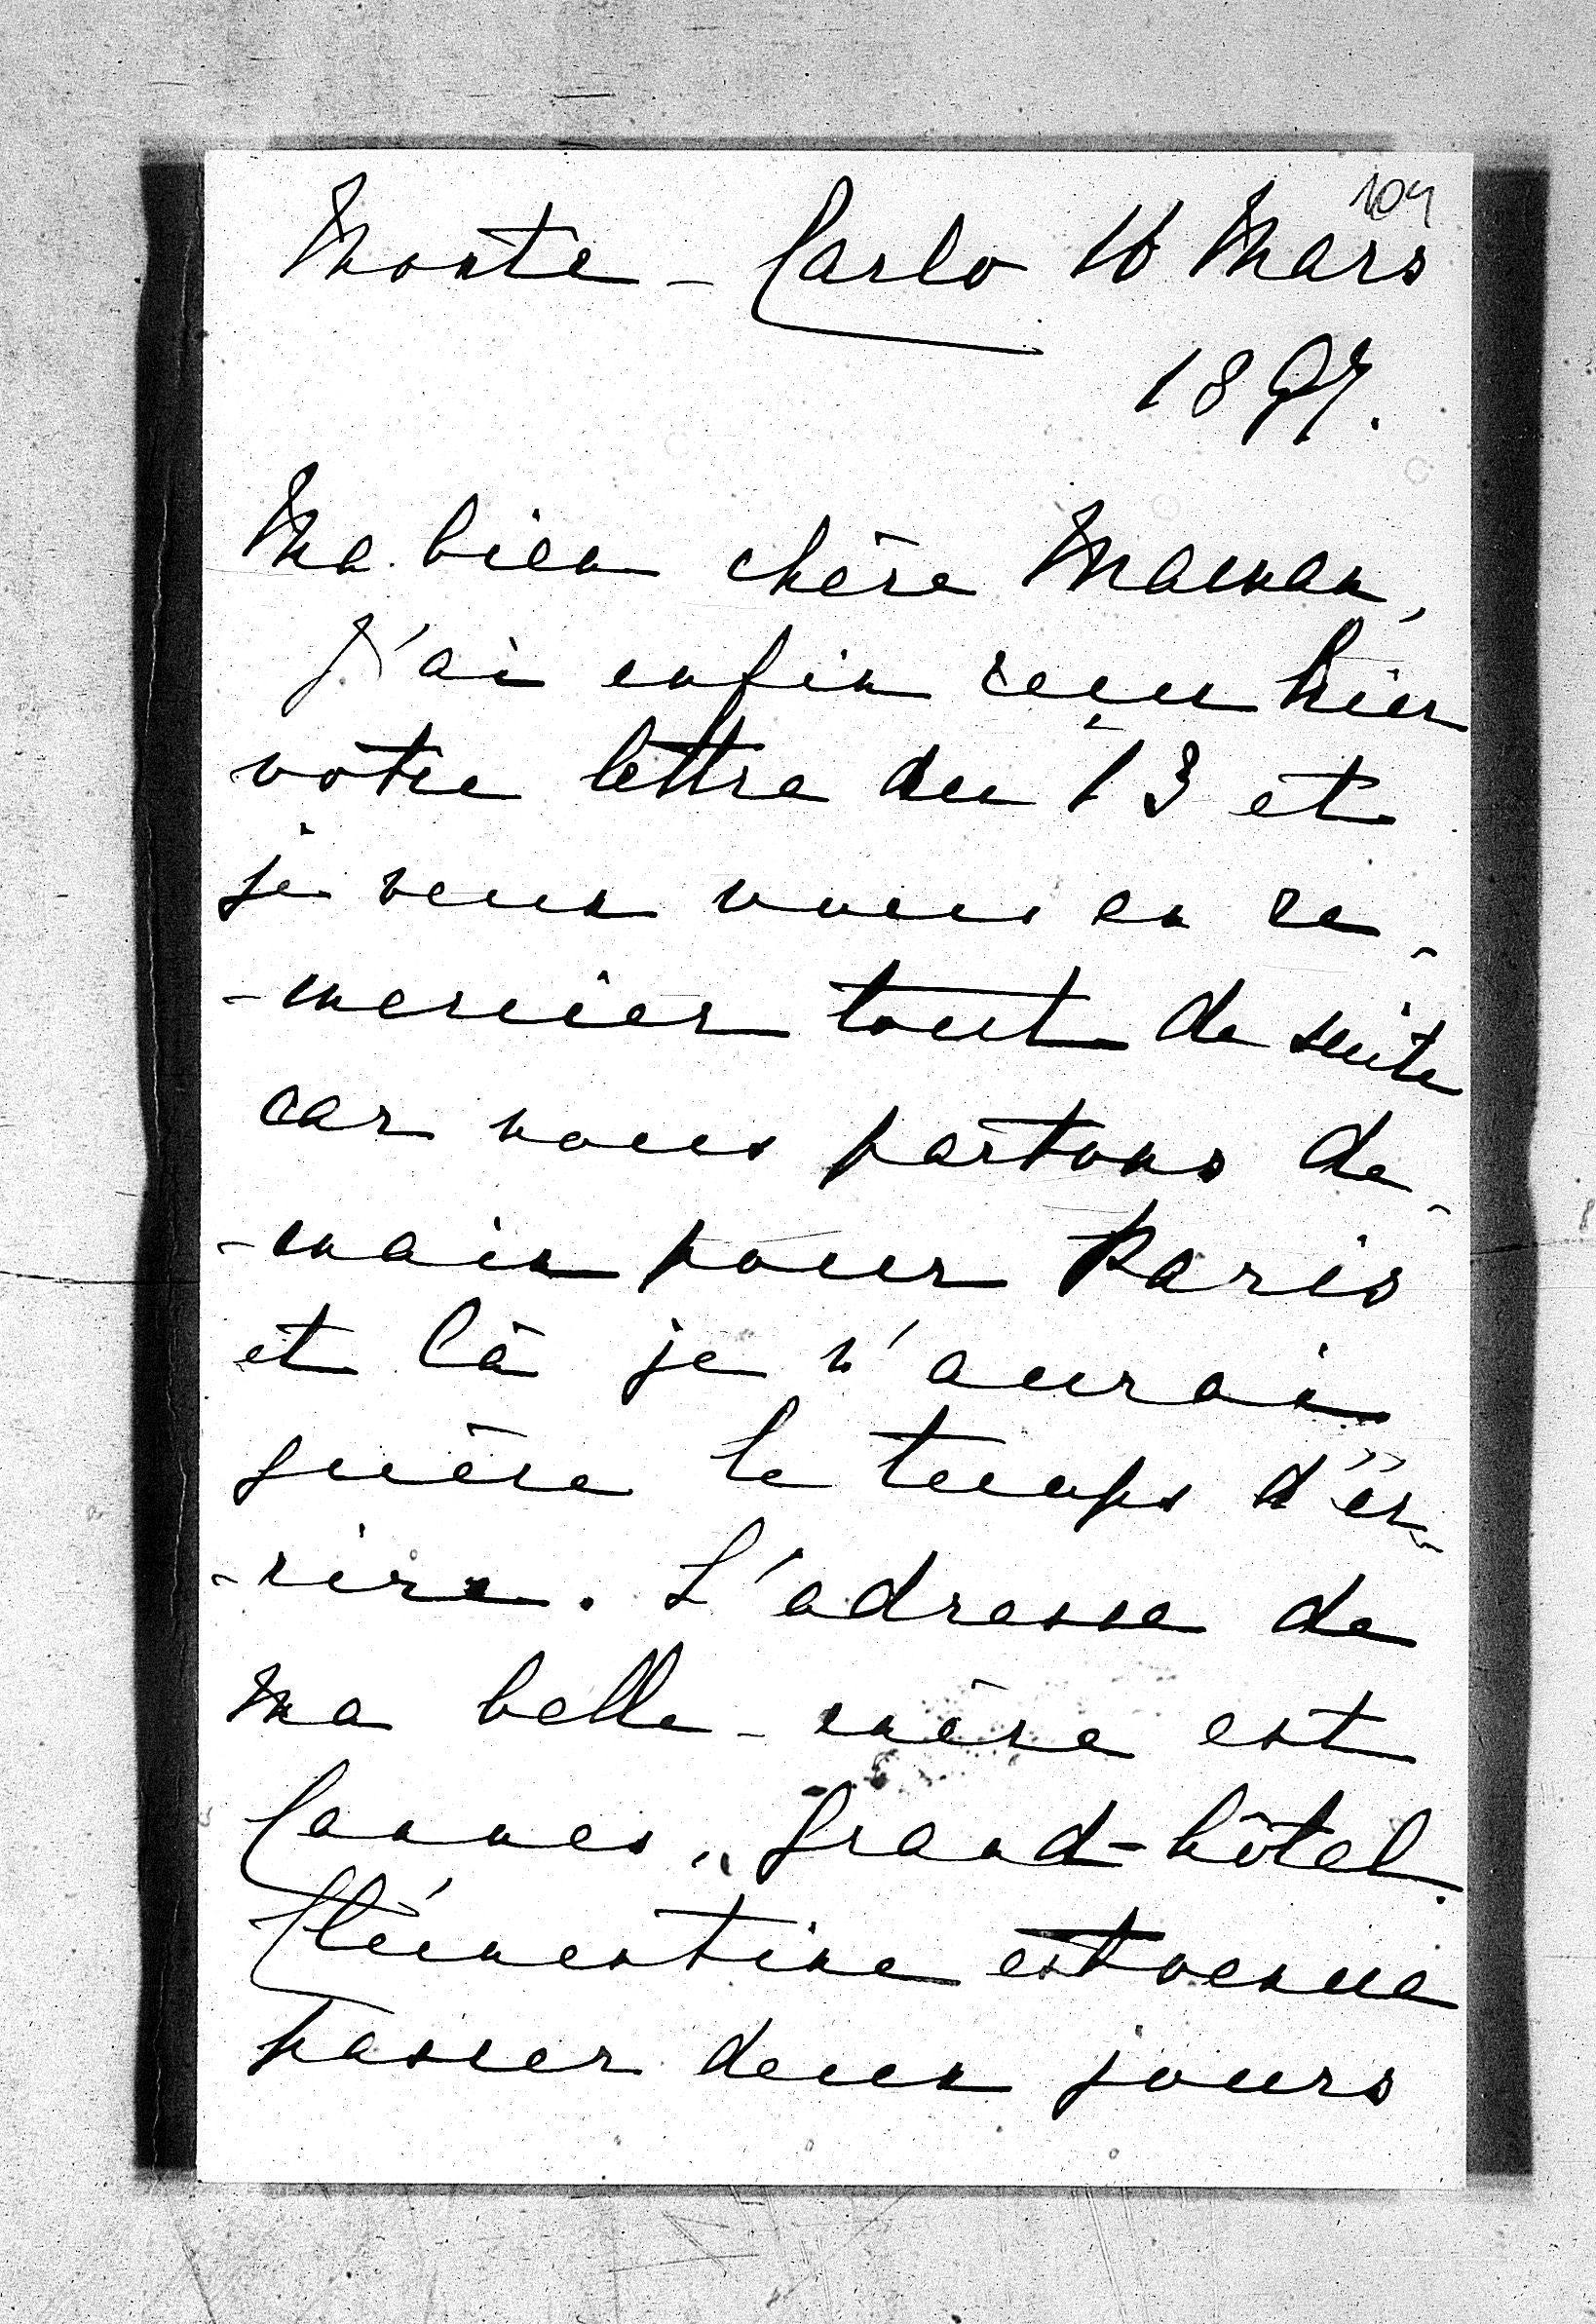 104
Monte-Carlo 16 Mars
1897.
Ma bien chère Maman,
J'ai enfin reçu hier
votre lettre du 13 et
je veux vous en re-
-mercier tout de suite
car nous partons de-
-main pour Paris
et là je n'aurai
guère le temps d'éc-
-rire. L'adresse de
ma belle-mère est
Cannes, Grand-hôtel.
Clémentine est venue
passer deux jours